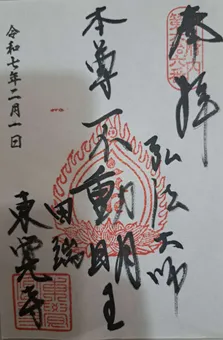 奉拝
弘法大師
本尊 不動明王
田端
東覚寺
令和七年二月一日